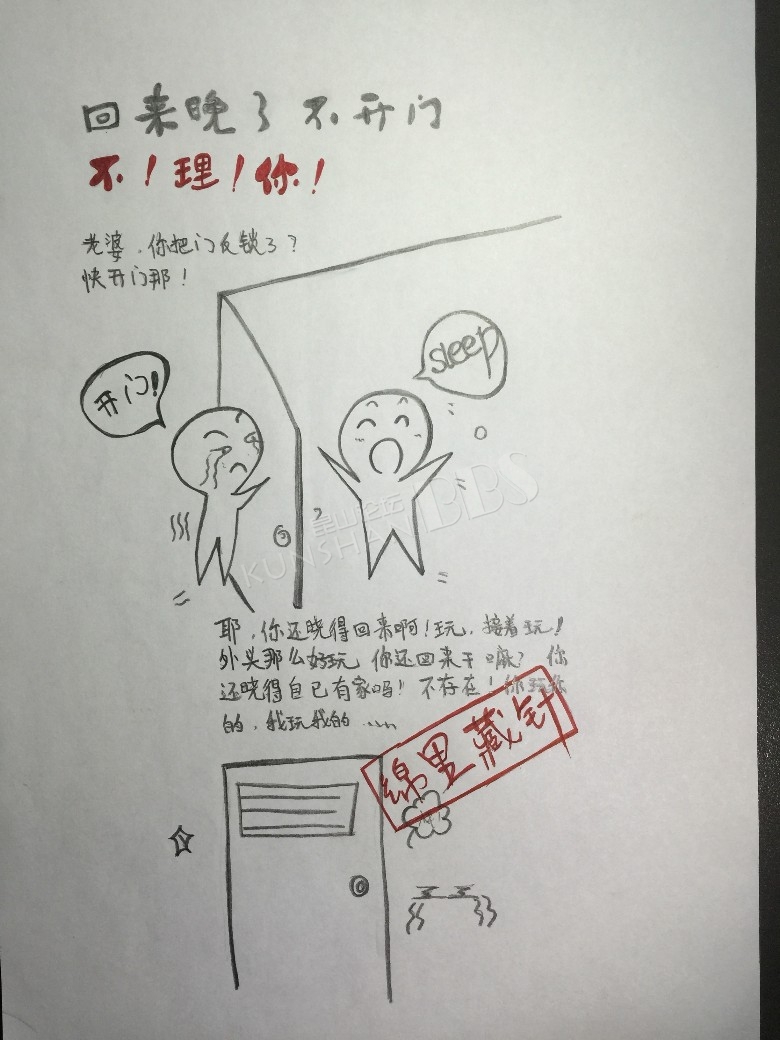 回来晚了 不开门
不！理！你！
老婆，你把门反锁了？
快开门那！
开门！
sleep
昆山论坛
KUNSHAN BBS
耶，你还晓得回来啊！玩，接着玩！
外头那么好玩 你还回来干嘛？ 你
还晓得自己有家吗！ 不存在！你玩你
的，我玩我的……
绵里藏针